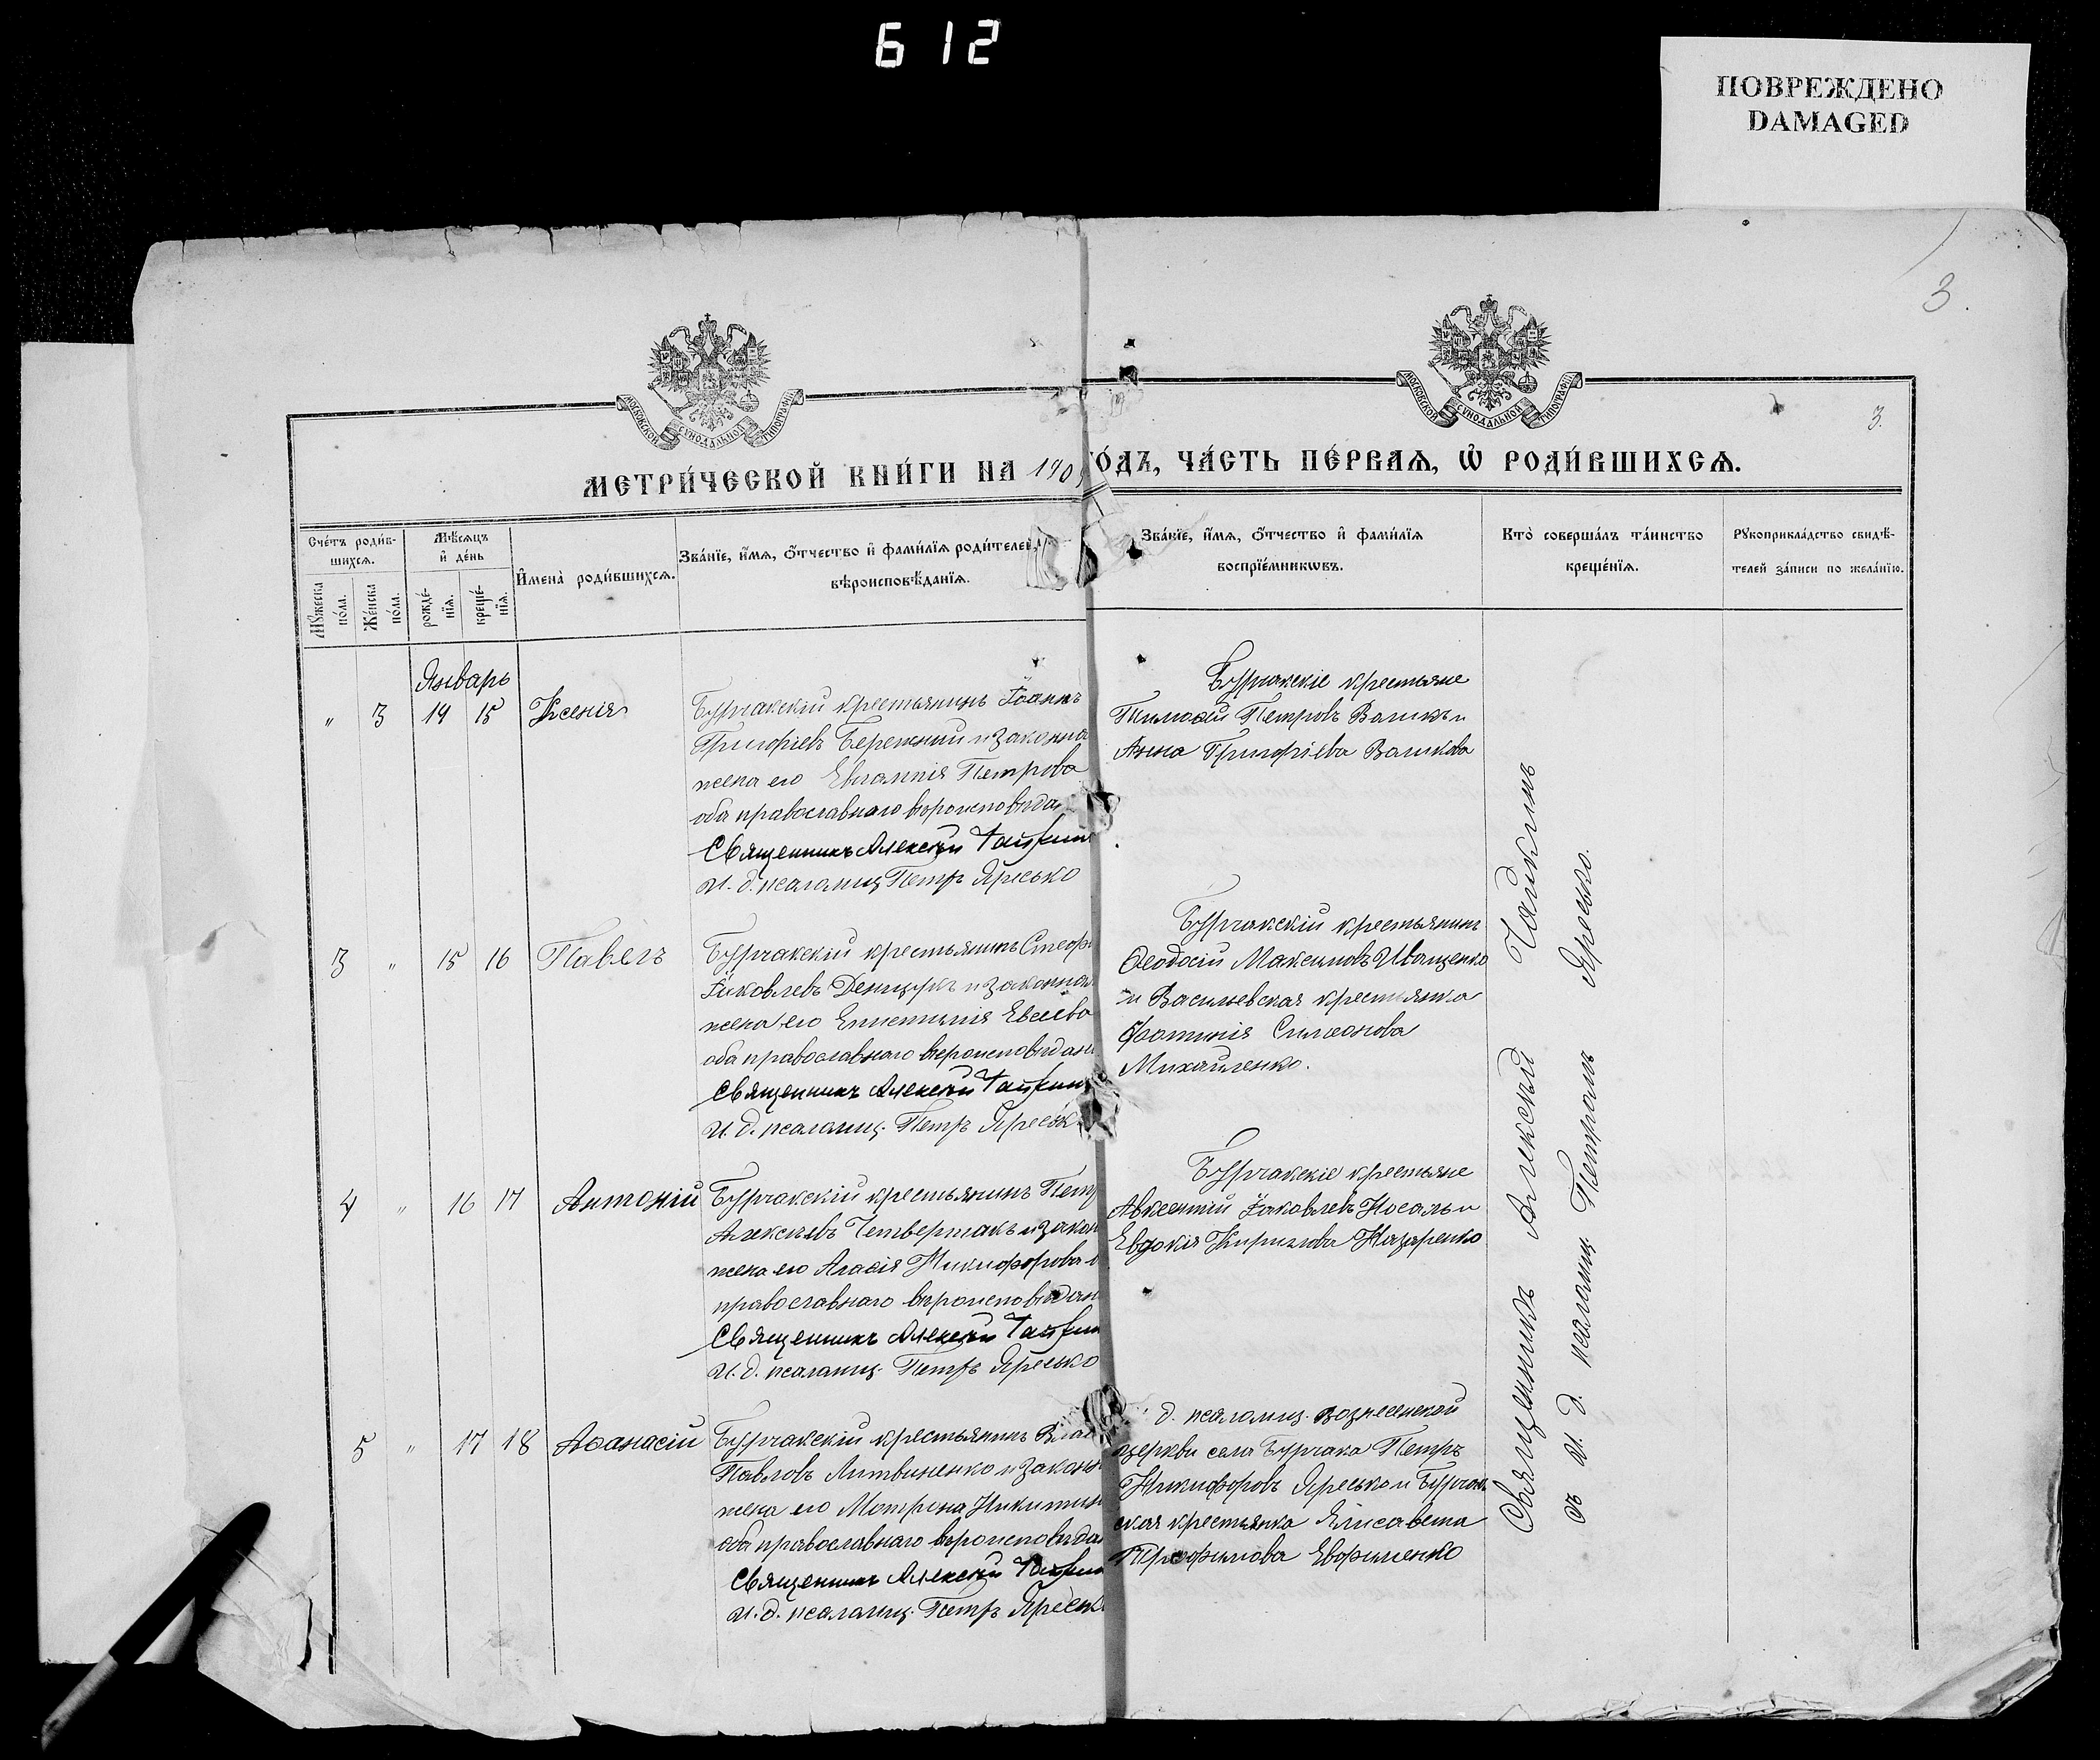 612
ПОВРЕЖДЕНО
DAMAGED
3.
МОСКОВСКОЙ СУНОДАЛЬНОЙ ТИПОГРАФІИ
МОСКОВСКОЙ СУНОДАЛЬНОЙ ТИПОГРАФІИ
3.
МЕТРИ́ЧЕСКОЙ КНИ́ГИ НА 190
О́ДЪ, ЧА́СТЬ ПЕ́РВАѦ, Ѡ҆ РОДИ́ВШИХСѦ.
Сче́тъ роди́в-
шихсѧ.
Мꙋ́жеска по́ла.
Же́нска по́ла.
Мѣ́сѧцъ
и҆ де́нь
рожде́-
нїѧ.
креще́-
нїѧ.
И҆мена̀ роди́вшихсѧ.
Зва́нїе, и҆́мѧ, ѻ҆́тчество и҆ фами́лїѧ роди́телей,
вѣроисповѣ́данїѧ.
Зва́нїе, и҆́мѧ, ѻ҆́тчество и҆ фами́лїѧ
воспрїе́мникѡвъ.
Кто̀ соверша́лъ та́инство
креще́нїѧ.
Рꙋкоприкла́дство свидѣ́-
телей за́писи по жела́нїю.
Январь
" 3 14 15 Ксенія
Бурчакскій крестьянинъ Іоаннъ
Григоріевъ Бережний и законна
жена его Евлампія Петрова
оба православнаго вѣроисповѣда
Священникъ Алексѣй Чайкин
И. д. псаломщ Петръ Яресько
Бурчакскіе крестьяне
Тимоѳей Петровъ Валикъ и
Анна Григоріева Валикова
3 " 15 16 Павелъ
Бурчакскій крестьянинъ Стеф
Іаковлевъ Денищукъ и законная
жена его Епистимія Евсеева
оба православнаго вѣроисповѣдан
Священникъ Алексѣй Чайкин
И. д. псаломщ. Петръ Яреськ
Бурчакскій крестьянинъ
Ѳеодосій Максимовъ Иващенко
и Васильевская крестьянка
Фотинія Симеонова
Михайленко.
4 " 16 17 Антоній
Бурчакскій крестьянинъ Петр
Алексѣевъ Четвертакъ и закон
жена его Агаѳія Никифорова о
православнаго вѣроисповѣдан
Священникъ Алексѣй Чайкин
И. д. псаломщ. Петръ Яресько
Бурчакскіе крестьяне
Авксентий Іаковлевъ Носаль и
Евдокія Кирилова Назаренко
5 " 17 18 Аѳанасій
Бурчакскій крестьянинъ Влас
Павловъ Литвиненко и законн
жена его Мотрона Никитин
оба православнаго вѣроисповѣда
Священникъ Алексѣй Чайкин
И. д. псаломщ. Петръ Яреськ
д. псаломщ. Вознесенской
церкви села Бурчака Петръ
Никифоровъ Яресько и Бурчак
ская крестьянка Елисавета
Трофимова Евфименко
Священникъ Алексѣй Чайкинъ
съ И. д. псаломщ. Петромъ Яресько.